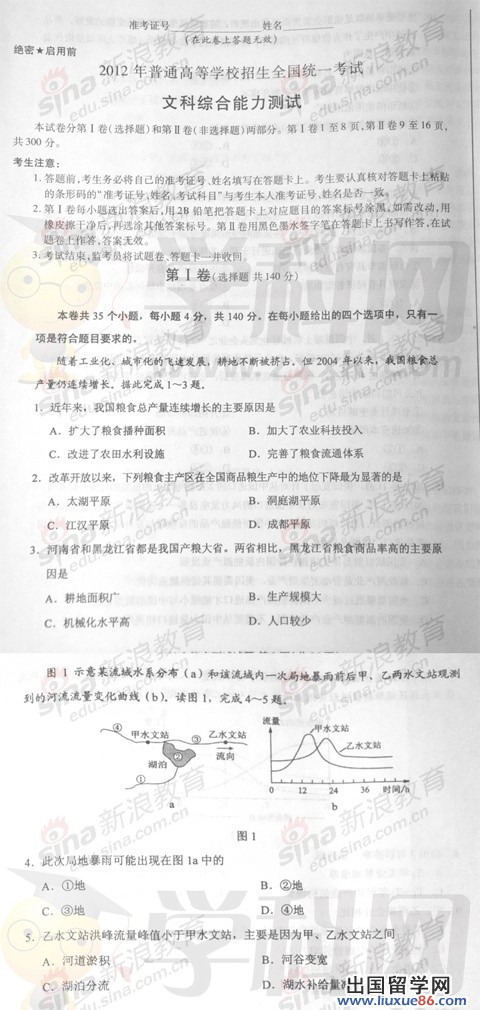 准考证号 姓名
(在此卷上答题无效)
绝密★启用前
2012年普通高等学校招生全国统一考试
文科综合能力测试
本试卷分第Ⅰ卷(选择题)和第Ⅱ卷(非选择题)两部分。第Ⅰ卷1至8页,第Ⅱ卷9至16页,
共300分。
考生注意:
1. 答题前,考生务必将自己的准考证号、姓名填写在答题卡上。考生要认真核对答题卡上粘贴
的条形码的“准考证号、姓名、考试科目”与考生本人准考证号、姓名是否一致。
2. 第Ⅰ卷每小题选出答案后,用2B铅笔把答题卡上对应题目的答案标号涂黑,如需改动,用
橡皮擦干净后,再选涂其他答案标号。第Ⅱ卷用黑色墨水签字笔在答题卡上书写作答,在试
题卷上作答,答案无效。
3. 考试结束,监考员将试题卷、答题卡一并收回。
第Ⅰ卷(选择题 共140分)
本卷共35个小题,每小题4分,共140分。在每小题给出的四个选项中,只有一
项是符合题目要求的。
随着工业化、城市化的飞速发展,耕地不断被挤占。但2004年以来,我国粮食总
产量仍连续增长。据此完成1~3题。
1. 近年来,我国粮食总产量连续增长的主要原因是
A. 扩大了粮食播种面积 B. 加大了农业科技投入
C. 改进了农田水利设施 D. 完善了粮食流通体系
2. 改革开放以来,下列粮食主产区在全国商品粮生产中的地位下降最为显著的是
A. 太湖平原 B. 洞庭湖平原
C. 江汉平原 D. 成都平原
3. 河南省和黑龙江省都是我国产粮大省。两省相比,黑龙江省粮食商品率高的主要原
因是
A. 耕地面积广 B. 生产规模大
C. 机械化水平高 D. 人口较少
图1示意某流域水系分布(a)和该流域内一次局地暴雨前后甲、乙两水文站观测
到的河流流量变化曲线(b)。读图1,完成4~5题。
④ 甲水文站 ③ 乙水文站
② 流向
湖泊
①
a
流量
甲水文站
乙水文站
0 12 24 36 时间/h
b
图1
4. 此次局地暴雨可能出现在图1a中的
A. ①地 B. ②地
C. ③地 D. ④地
5. 乙水文站洪峰流量峰值小于甲水文站,主要是因为甲、乙水文站之间
A. 河道淤积 B. 河谷变宽
C. 湖泊分流 D. 湖水补给量
sina新浪教育
edu.sina.com.cn
学科网
出国留学网
www.liuxue86.com